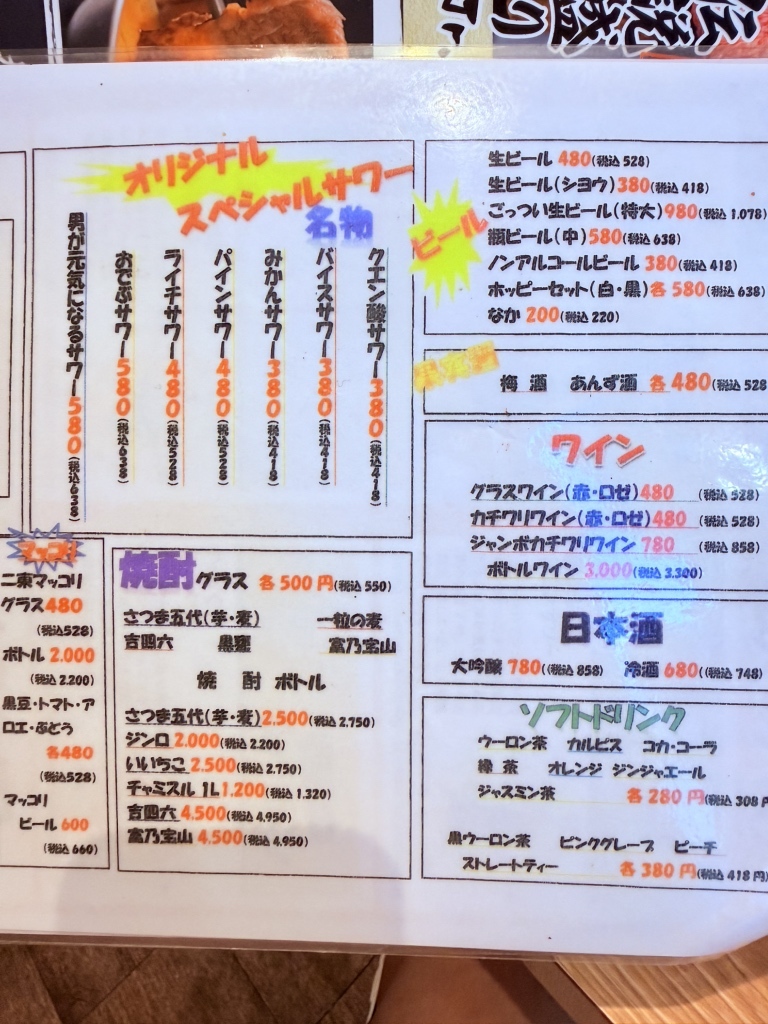 オリジナル
スペシャルサワー
名物
クエン酸サワー380(税込418)
バイスサワー380(税込418)
みかんサワー380(税込418)
パインサワー480(税込528)
ライチサワー480(税込528)
おでぶサワー580(税込638)
男が元気になるサワー580(税込638)
ビール
生ビール 480(税込 528)
生ビール(シヨウ)380(税込 418)
ごっつい生ビール(特大)980(税込 1.078)
瓶ビール(中)580(税込 638)
ノンアルコールビール 380(税込 418)
ホッピーセット(白・黒)各 580(税込 638)
なか 200(税込 220)
果実酒
梅酒 あんず酒 各 480(税込 528
ワイン
グラスワイン(赤・ロゼ)480 (税込 528)
カチワリワイン(赤・ロゼ)480 (税込 528)
ジャンボカチワリワイン 780 (税込 858)
ボトルワイン 3,000(税込 3.300)
日本酒
大吟醸 780((税込 858) 冷酒 680((税込 748)
ソフトドリンク
ウーロン茶 カルピス コカ・コーラ
緑 茶 オレンジ ジンジャエール
ジャスミン茶 各 280 円(税込 308 円
黒ウーロン茶 ピンクグレープ ピーチ
ストレートティー 各 380 円(税込 418 円)
マッコリ
二東マッコリ
グラス480
(税込528)
ボトル 2.000
(税込 2.200)
黒豆・トマト・ア
ロエ・ぶどう
各480
(税込528)
マッコリ
ビール 600
(税込 660)
焼酎グラス 各 500 円(税込 550)
さつま五代(芋・麦) 一粒の麦
吉四六 黒霧 富乃宝山
焼 酎 ボトル
さつま五代(芋・麦)2.500(税込 2.750)
ジンロ 2.000(税込 2.200)
いいちこ 2.500(税込 2.750)
チャミスル 1L1.200(税込 1.320)
吉四六 4.500(税込 4.950)
富乃宝山 4,500(税込 4.950)